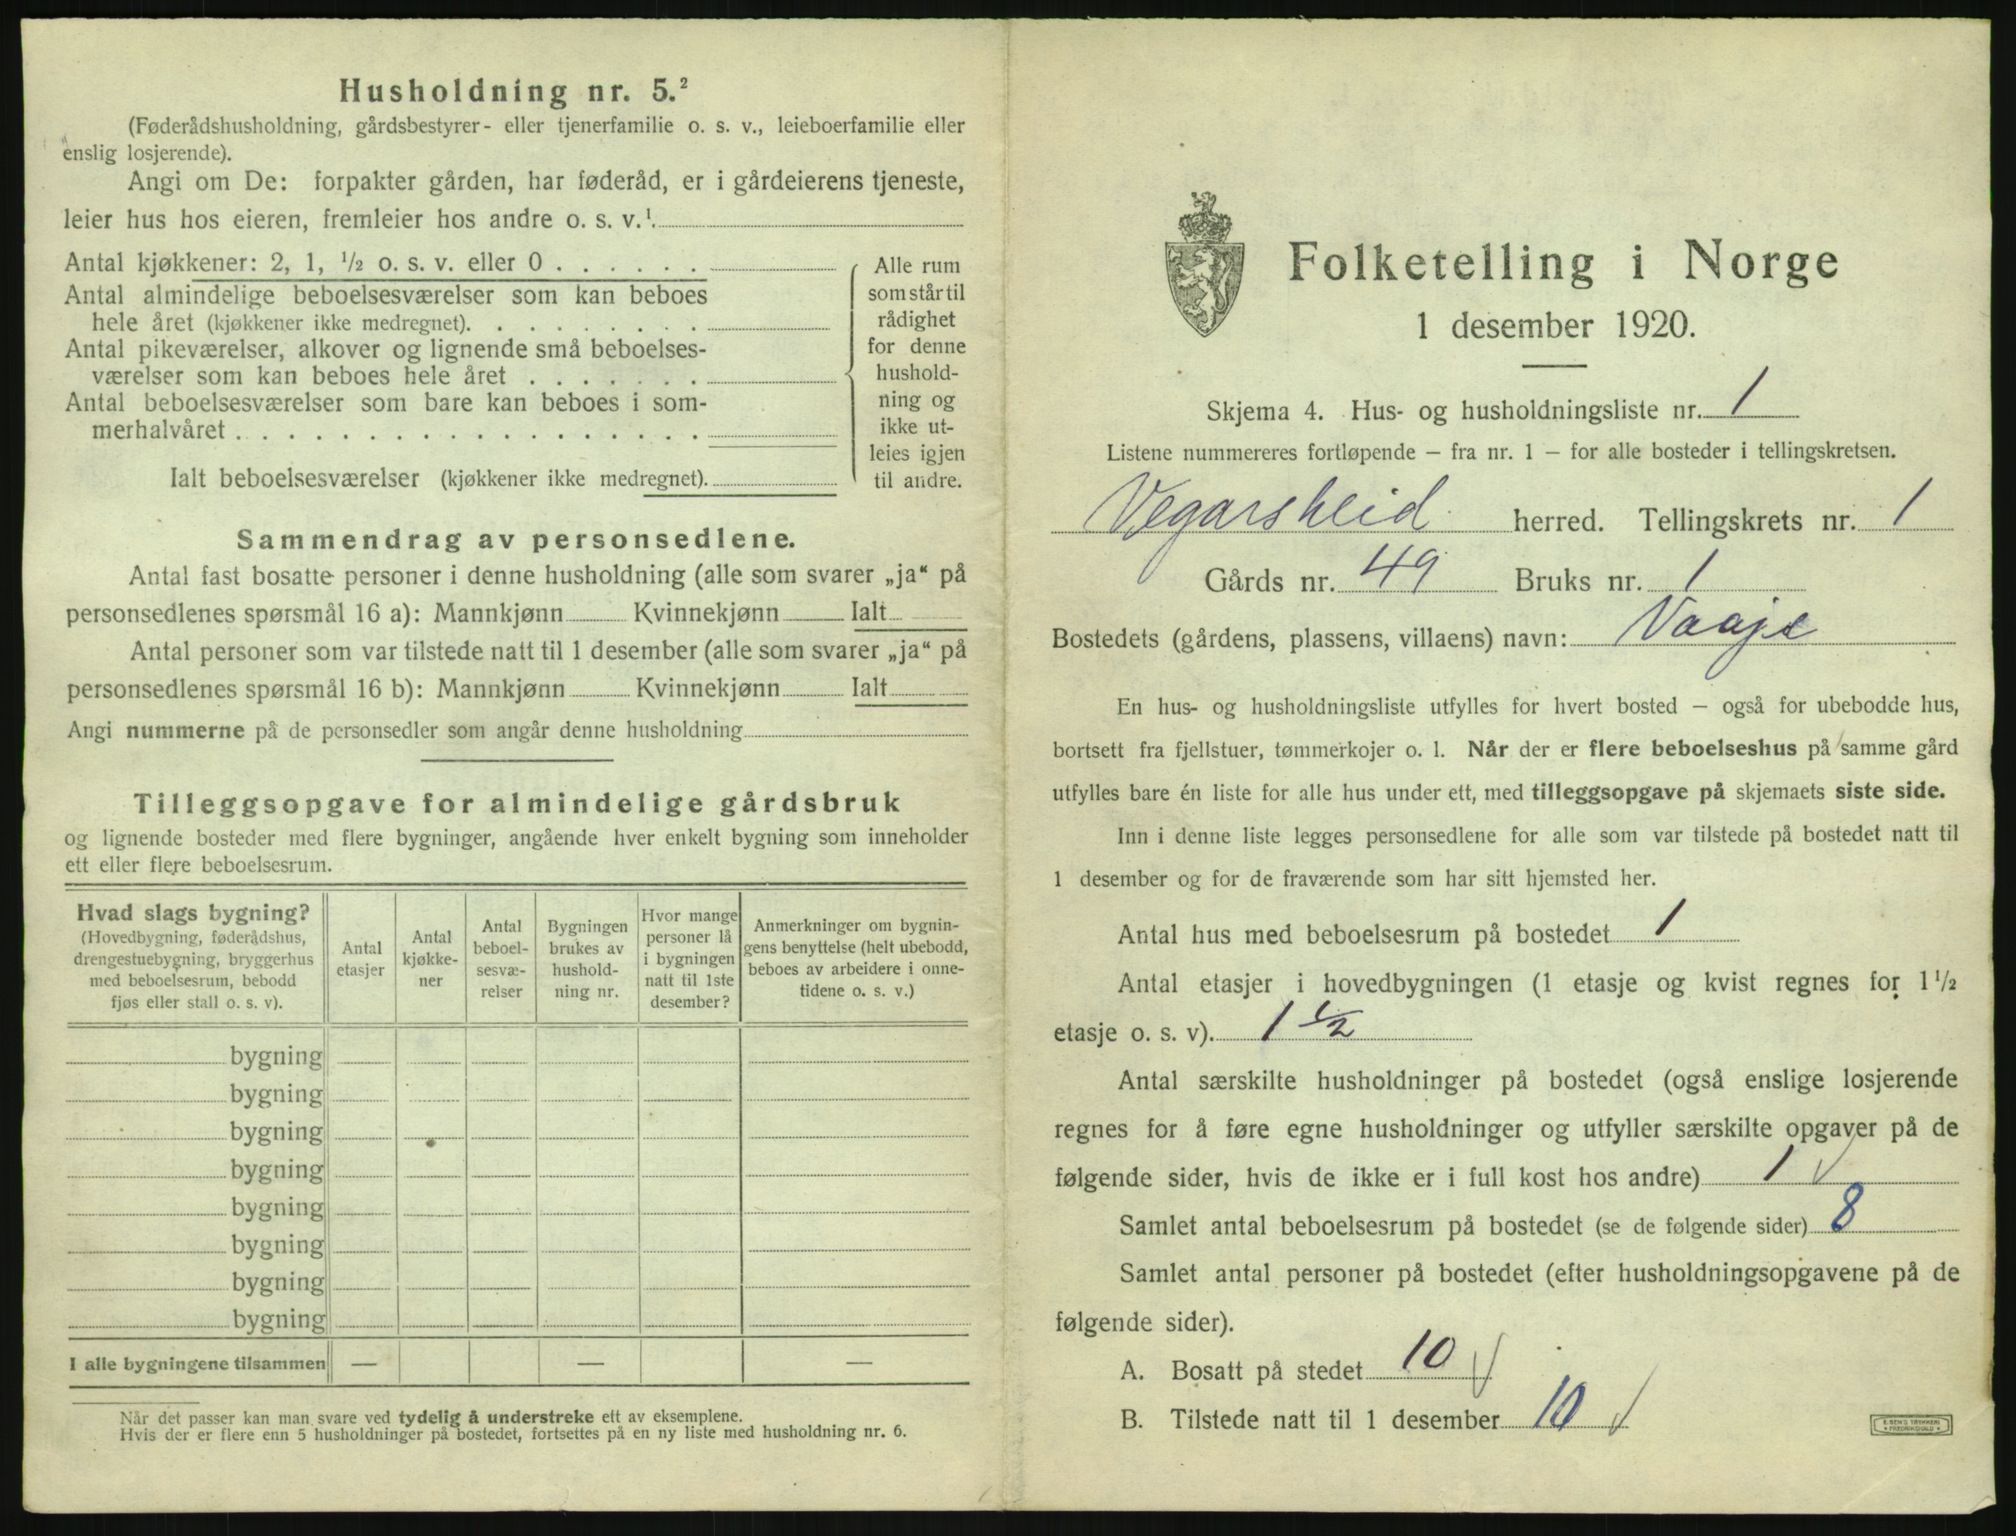 Husholdning nr. 5.²
(Føderådshusholdning, gårdsbestyrer- eller tjenerfamilie o. s. v., leieboerfamilie eller
enslig losjerende).
Angi om De: forpakter gården, har føderåd, er i gårdeierens tjeneste,
leier hus hos eieren, fremleier hos andre o. s. v.¹
Antal kjøkkener: 2, 1, ½ o. s. v. eller 0 . . . . . .
Antal almindelige beboelsesværelser som kan beboes
hele året (kjøkkener ikke medregnet). . . . . . . . .
Antal pikeværelser, alkover og lignende små beboelses-
værelser som kan beboes hele året . . . . . . .
Antal beboelsesværelser som bare kan beboes i som-
merhalvåret . . . . . . . . . . . . . . . . . .
Ialt beboelsesværelser (kjøkkener ikke medregnet).
Alle rum
som står til
rådighet
for denne
hushold-
ning og
ikke ut-
leies igjen
til andre.
Sammendrag av personsedlene.
Antal fast bosatte personer i denne husholdning (alle som svarer „ja“ på
personsedlenes spørsmål 16 a): Mannkjønn Kvinnekjønn Ialt
Antal personer som var tilstede natt til 1 desember (alle som svarer „ja“ på
personsedlenes spørsmål 16 b): Mannkjønn Kvinnekjønn Ialt
Angi nummerne på de personsedler som angår denne husholdning
Tilleggsopgave for almindelige gårdsbruk
og lignende bosteder med flere bygninger, angående hver enkelt bygning som inneholder
ett eller flere beboelsesrum.
Hvad slags bygning?
(Hovedbygning, føderådshus,
drengestuebygning, bryggerhus
med beboelsesrum, bebodd
fjøs eller stall o. s. v).
Antal
etasjer
Antal
kjøkke-
ner
Antal
beboel-
sesvæ-
relser
Bygningen
brukes av
hushold-
ning nr.
Hvor mange
personer lå
i bygningen
natt til 1ste
desember?
Anmerkninger om bygnin-
gens benyttelse (helt ubebodd,
beboes av arbeidere i onne-
tidene o. s. v.)
bygning
bygning
bygning
bygning
bygning
bygning
bygning
bygning
I alle bygningene tilsammen — — —
Når det passer kan man svare ved tydelig å understreke ett av eksemplene.
Hvis der er flere enn 5 husholdninger på bostedet, fortsettes på en ny liste med husholdning nr. 6.
Folketelling i Norge
1 desember 1920.
Skjema 4. Hus- og husholdningsliste nr. 1
Listene nummereres fortløpende – fra nr. 1 – for alle bosteder i tellingskretsen.
Vegarsheid herred. Tellingskrets nr. 1
Gårds nr. 49 Bruks nr. 1
Bostedets (gårdens, plassens, villaens) navn: Vaaje
En hus- og husholdningsliste utfylles for hvert bosted – også for ubebodde hus,
bortsett fra fjellstuer, tømmerkojer o. l. Når der er flere beboelseshus på samme gård
utfylles bare én liste for alle hus under ett, med tilleggsopgave på skjemaets siste side.
Inn i denne liste legges personsedlene for alle som var tilstede på bostedet natt til
1 desember og for de fraværende som har sitt hjemsted her.
Antal hus med beboelsesrum på bostedet 1
Antal etasjer i hovedbygningen (1 etasje og kvist regnes for 1½
etasje o. s. v). 1 ½
Antal særskilte husholdninger på bostedet (også enslige losjerende
regnes for å føre egne husholdninger og utfyller særskilte opgaver på de
følgende sider, hvis de ikke er i full kost hos andre) 1 √
Samlet antal beboelsesrum på bostedet (se de følgende sider) 8
Samlet antal personer på bostedet (efter husholdningsopgavene på de
følgende sider).
A. Bosatt på stedet 10 √
B. Tilstede natt til 1 desember 10 √
E. SEM'S TRYKKERI
FREDRIKSHALD